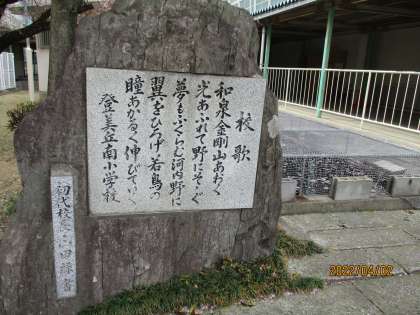 校歌
和泉金剛山あおく
光あふれて野にそそぐ
夢もふくらん河内野に
翼をひろげ若鳥の
瞳あかるく伸びていく
登美丘南小学校
初代校長
2022/04/02